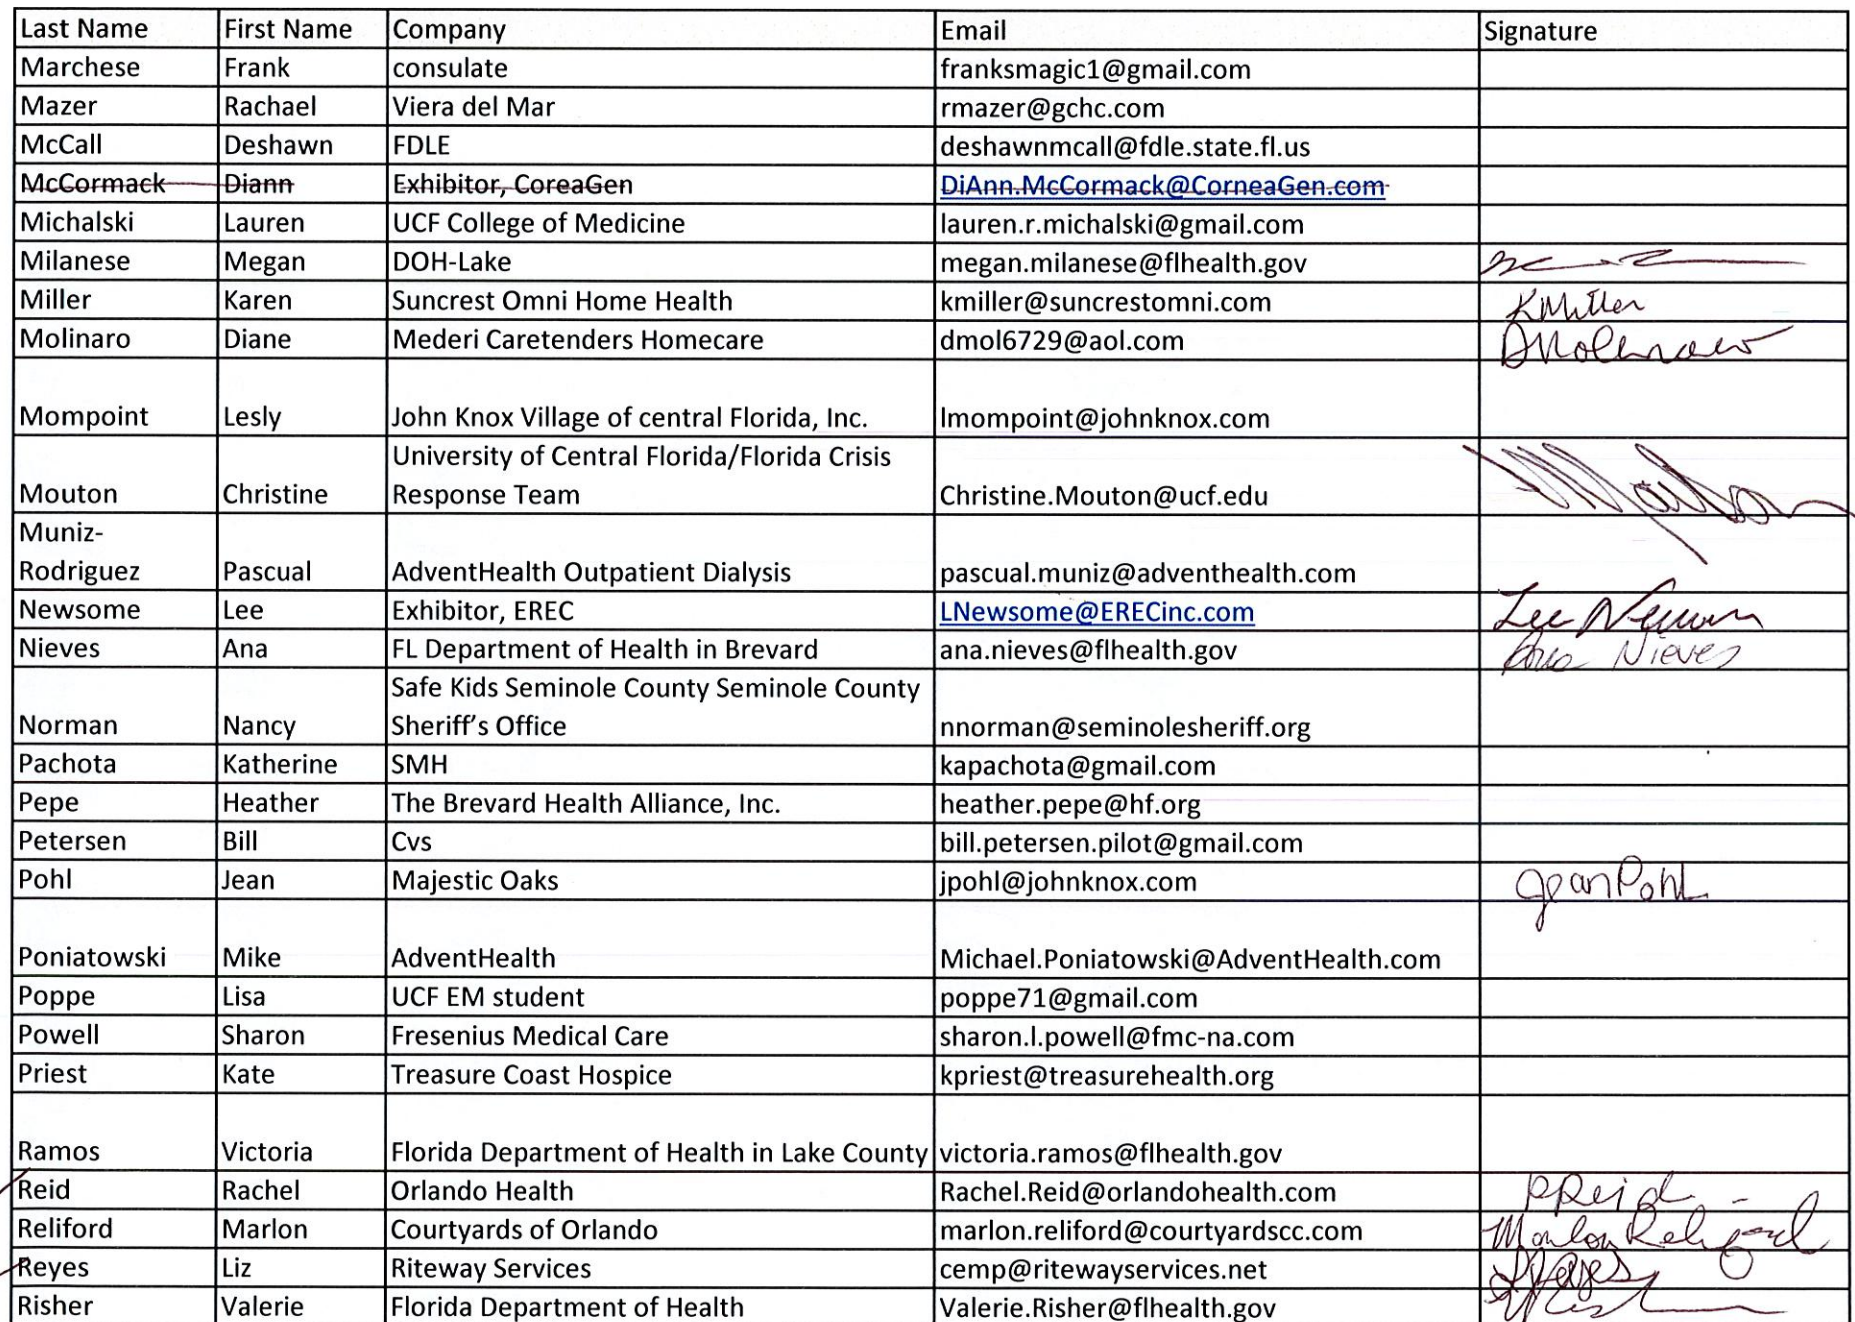 Last Name First Name Company Email Signature
Marchese Frank consulate franksmagic1@gmail.com
Mazer Rachael Viera del Mar rmazer@gchc.com
McCall Deshawn FDLE deshawnmcall@fdle.state.fl.us
McCormack Diann Exhibitor, CoreaGen DiAnn.McCormack@CorneaGen.com
Michalski Lauren UCF College of Medicine lauren.r.michalski@gmail.com
Milanese Megan DOH-Lake megan.milanese@flhealth.gov
Miller Karen Suncrest Omni Home Health kmiller@suncrestomni.com KMiller
Molinaro Diane Mederi Caretenders Homecare dmol6729@aol.com DMolinaro
Mompoint Lesly John Knox Village of central Florida, Inc. lmompoint@johnknox.com
University of Central Florida/Florida Crisis
Mouton Christine Response Team Christine.Mouton@ucf.edu
Muniz-
Rodriguez Pascual AdventHealth Outpatient Dialysis pascual.muniz@adventhealth.com
Newsome Lee Exhibitor, EREC LNewsome@ERECinc.com Lee Newsom
Nieves Ana FL Department of Health in Brevard ana.nieves@flhealth.gov Ana Nieves
Safe Kids Seminole County Seminole County
Norman Nancy Sheriff's Office nnorman@seminolesheriff.org
Pachota Katherine SMH kapachota@gmail.com
Pepe Heather The Brevard Health Alliance, Inc. heather.pepe@hf.org
Petersen Bill Cvs bill.petersen.pilot@gmail.com
Pohl Jean Majestic Oaks jpohl@johnknox.com Jean Pohl
Poniatowski Mike AdventHealth Michael.Poniatowski@AdventHealth.com
Poppe Lisa UCF EM student poppe71@gmail.com
Powell Sharon Fresenius Medical Care sharon.l.powell@fmc-na.com
Priest Kate Treasure Coast Hospice kpriest@treasurehealth.org
Ramos Victoria Florida Department of Health in Lake County victoria.ramos@flhealth.gov
Reid Rachel Orlando Health Rachel.Reid@orlandohealth.com RReid
Reliford Marlon Courtyards of Orlando marlon.reliford@courtyardscc.com Marlon Reliford
Reyes Liz Riteway Services cemp@ritewayservices.net LReyes
Risher Valerie Florida Department of Health Valerie.Risher@flhealth.gov